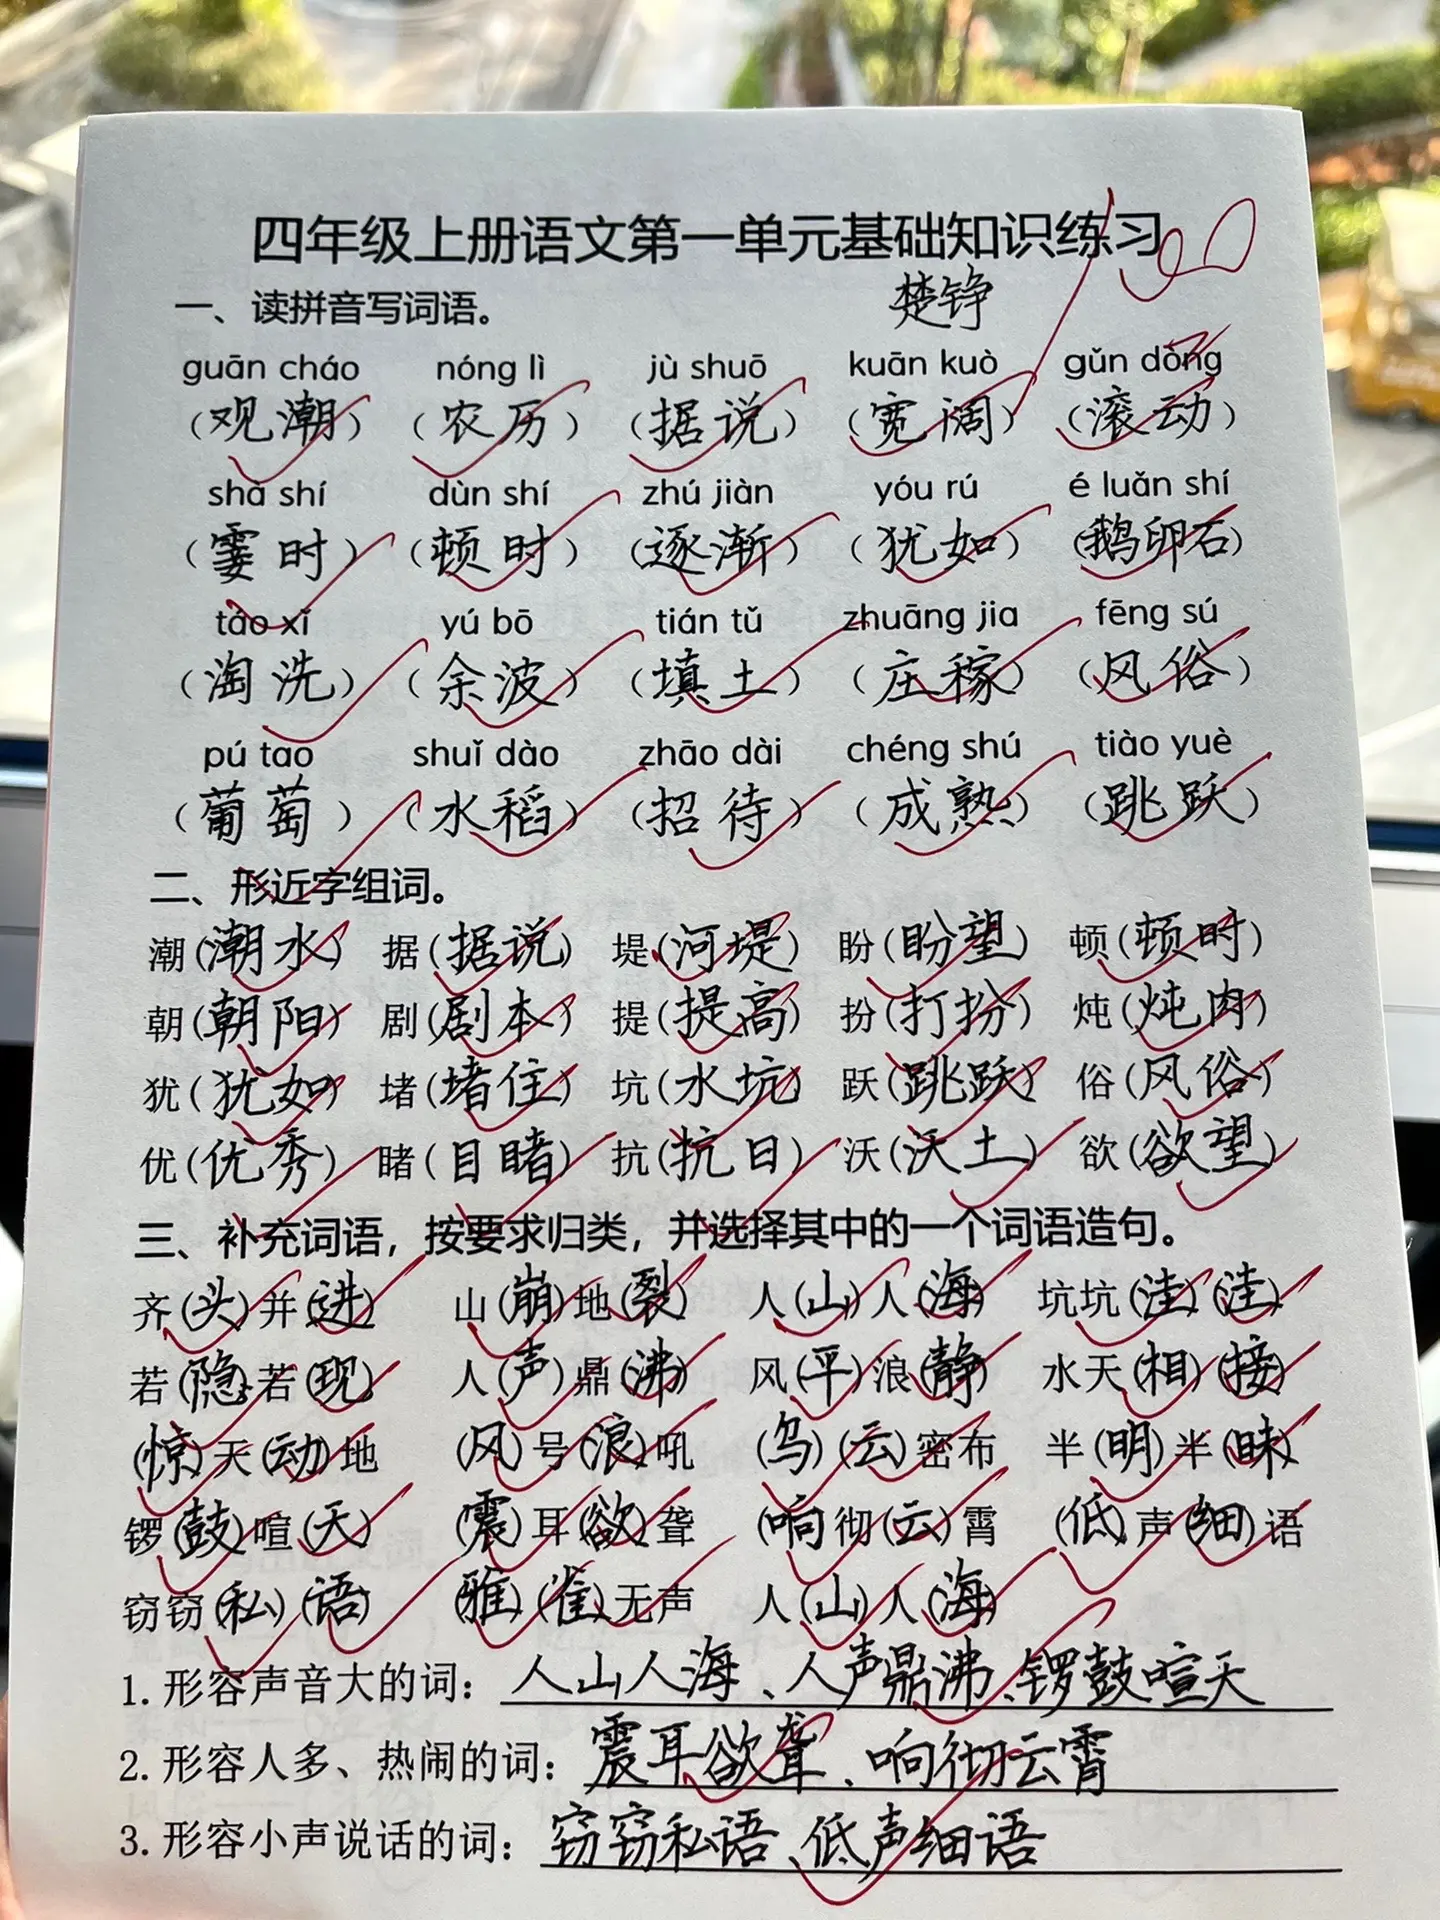 四年级上册语文第一单元基础知识练习
100
楚铮
一、读拼音写词语。
guān cháo nóng lì jù shuō kuān kuò gǔn dòng
(观潮) (农历) (据说) (宽阔) (滚动)
shà shí dùn shí zhú jiàn yóu rú é luǎn shí
(霎时) (顿时) (逐渐) (犹如) (鹅卵石)
táo xǐ yú bō tián tǔ zhuāng jia fēng sú
(淘洗) (余波) (填土) (庄稼) (风俗)
pú tao shuǐ dào zhāo dài chéng shú tiào yuè
(葡萄) (水稻) (招待) (成熟) (跳跃)
二、形近字组词。
潮(潮水) 据(据说) 堤(河堤) 盼(盼望) 顿(顿时)
朝(朝阳) 剧(剧本) 提(提高) 扮(打扮) 炖(炖肉)
犹(犹如) 堵(堵住) 坑(水坑) 跃(跳跃) 俗(风俗)
优(优秀) 睹(目睹) 抗(抗日) 沃(沃土) 欲(欲望)
三、补充词语，按要求归类，并选择其中的一个词语造句。
齐(头)并(进) 山(崩)地(裂) 人(山)人(海) 坑坑(洼)(洼)
若(隐)若(现) 人(声)鼎(沸) 风(平)浪(静) 水天(相)(接)
(惊)天(动)地 (风)号(浪)吼 (乌)(云)密布 半(明)半(昧)
锣(鼓)喧(天) (震)耳(欲)聋 (响)彻(云)霄 (低)声(细)语
窃窃(私)(语) (雅)(雀)无声 人(山)人(海)
1. 形容声音大的词：人山人海、人声鼎沸、锣鼓喧天
2. 形容人多、热闹的词：震耳欲聋、响彻云霄
3. 形容小声说话的词：窃窃私语、低声细语